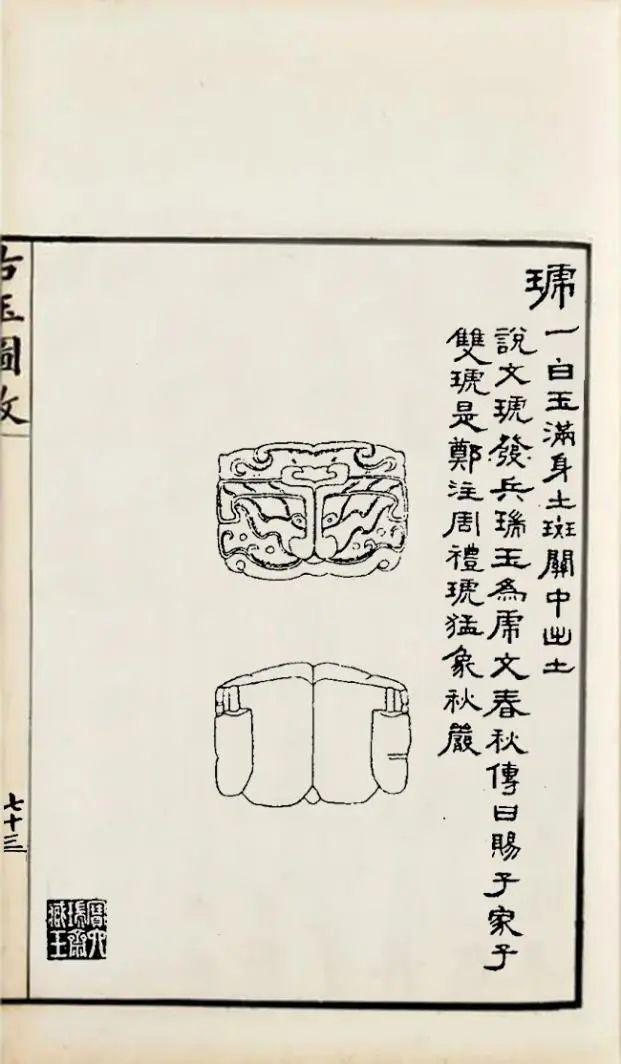 琥一白玉滿身土斑關中出土
說文琥發兵瑞玉為虎文春秋傳曰賜子家子
雙琥是鄭注周禮琥猛象秋嚴
古玉圖攷
七十三
寶六瑞齋臧玉